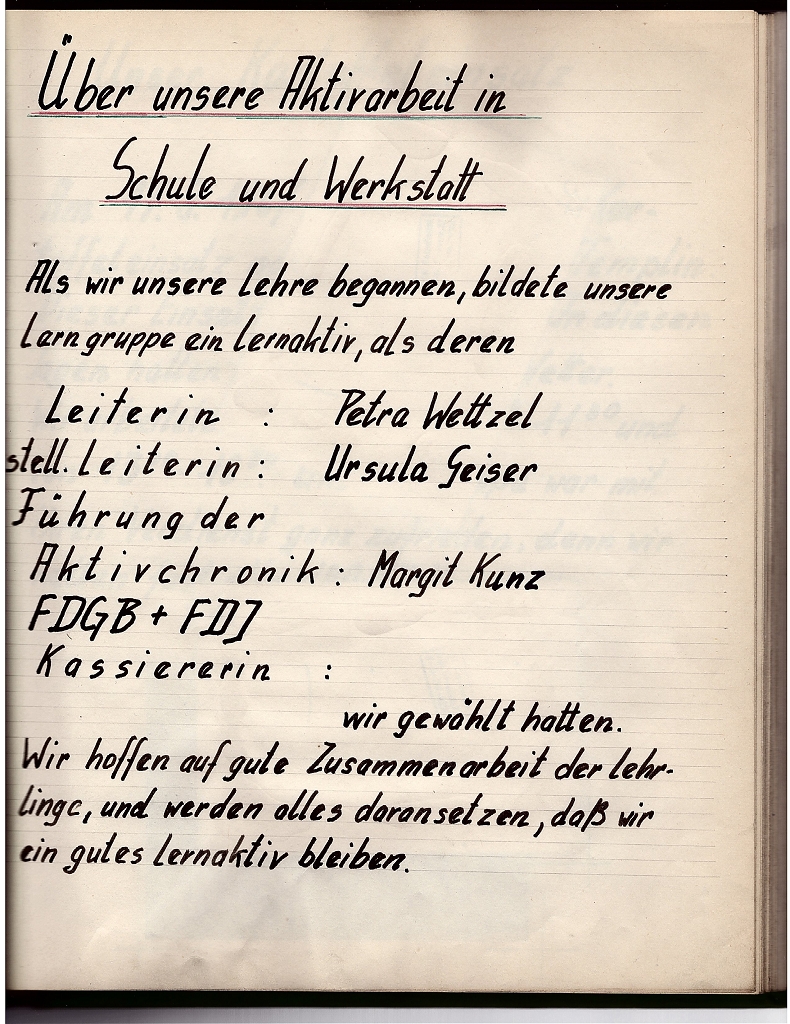 Über unsere Aktivarbeit in
Schule und Werkstatt
Als wir unsere Lehre begannen, bildete unsere
Larngruppe ein Lernaktiv, als deren
Leiterin : Petra Wettzel
stell. Leiterin : Ursula Geiser
Führung der
Aktivchronik : Margit Kunz
FDGB + FDJ
Kassiererin :
wir gewählt hatten.
Wir hoffen auf gute Zusammenarbeit der Lehr-
linge, und werden alles daransetzen, daß wir
ein gutes Lernaktiv bleiben.